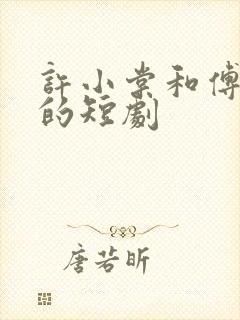 許小棠和傅
的短劇
唐若昕